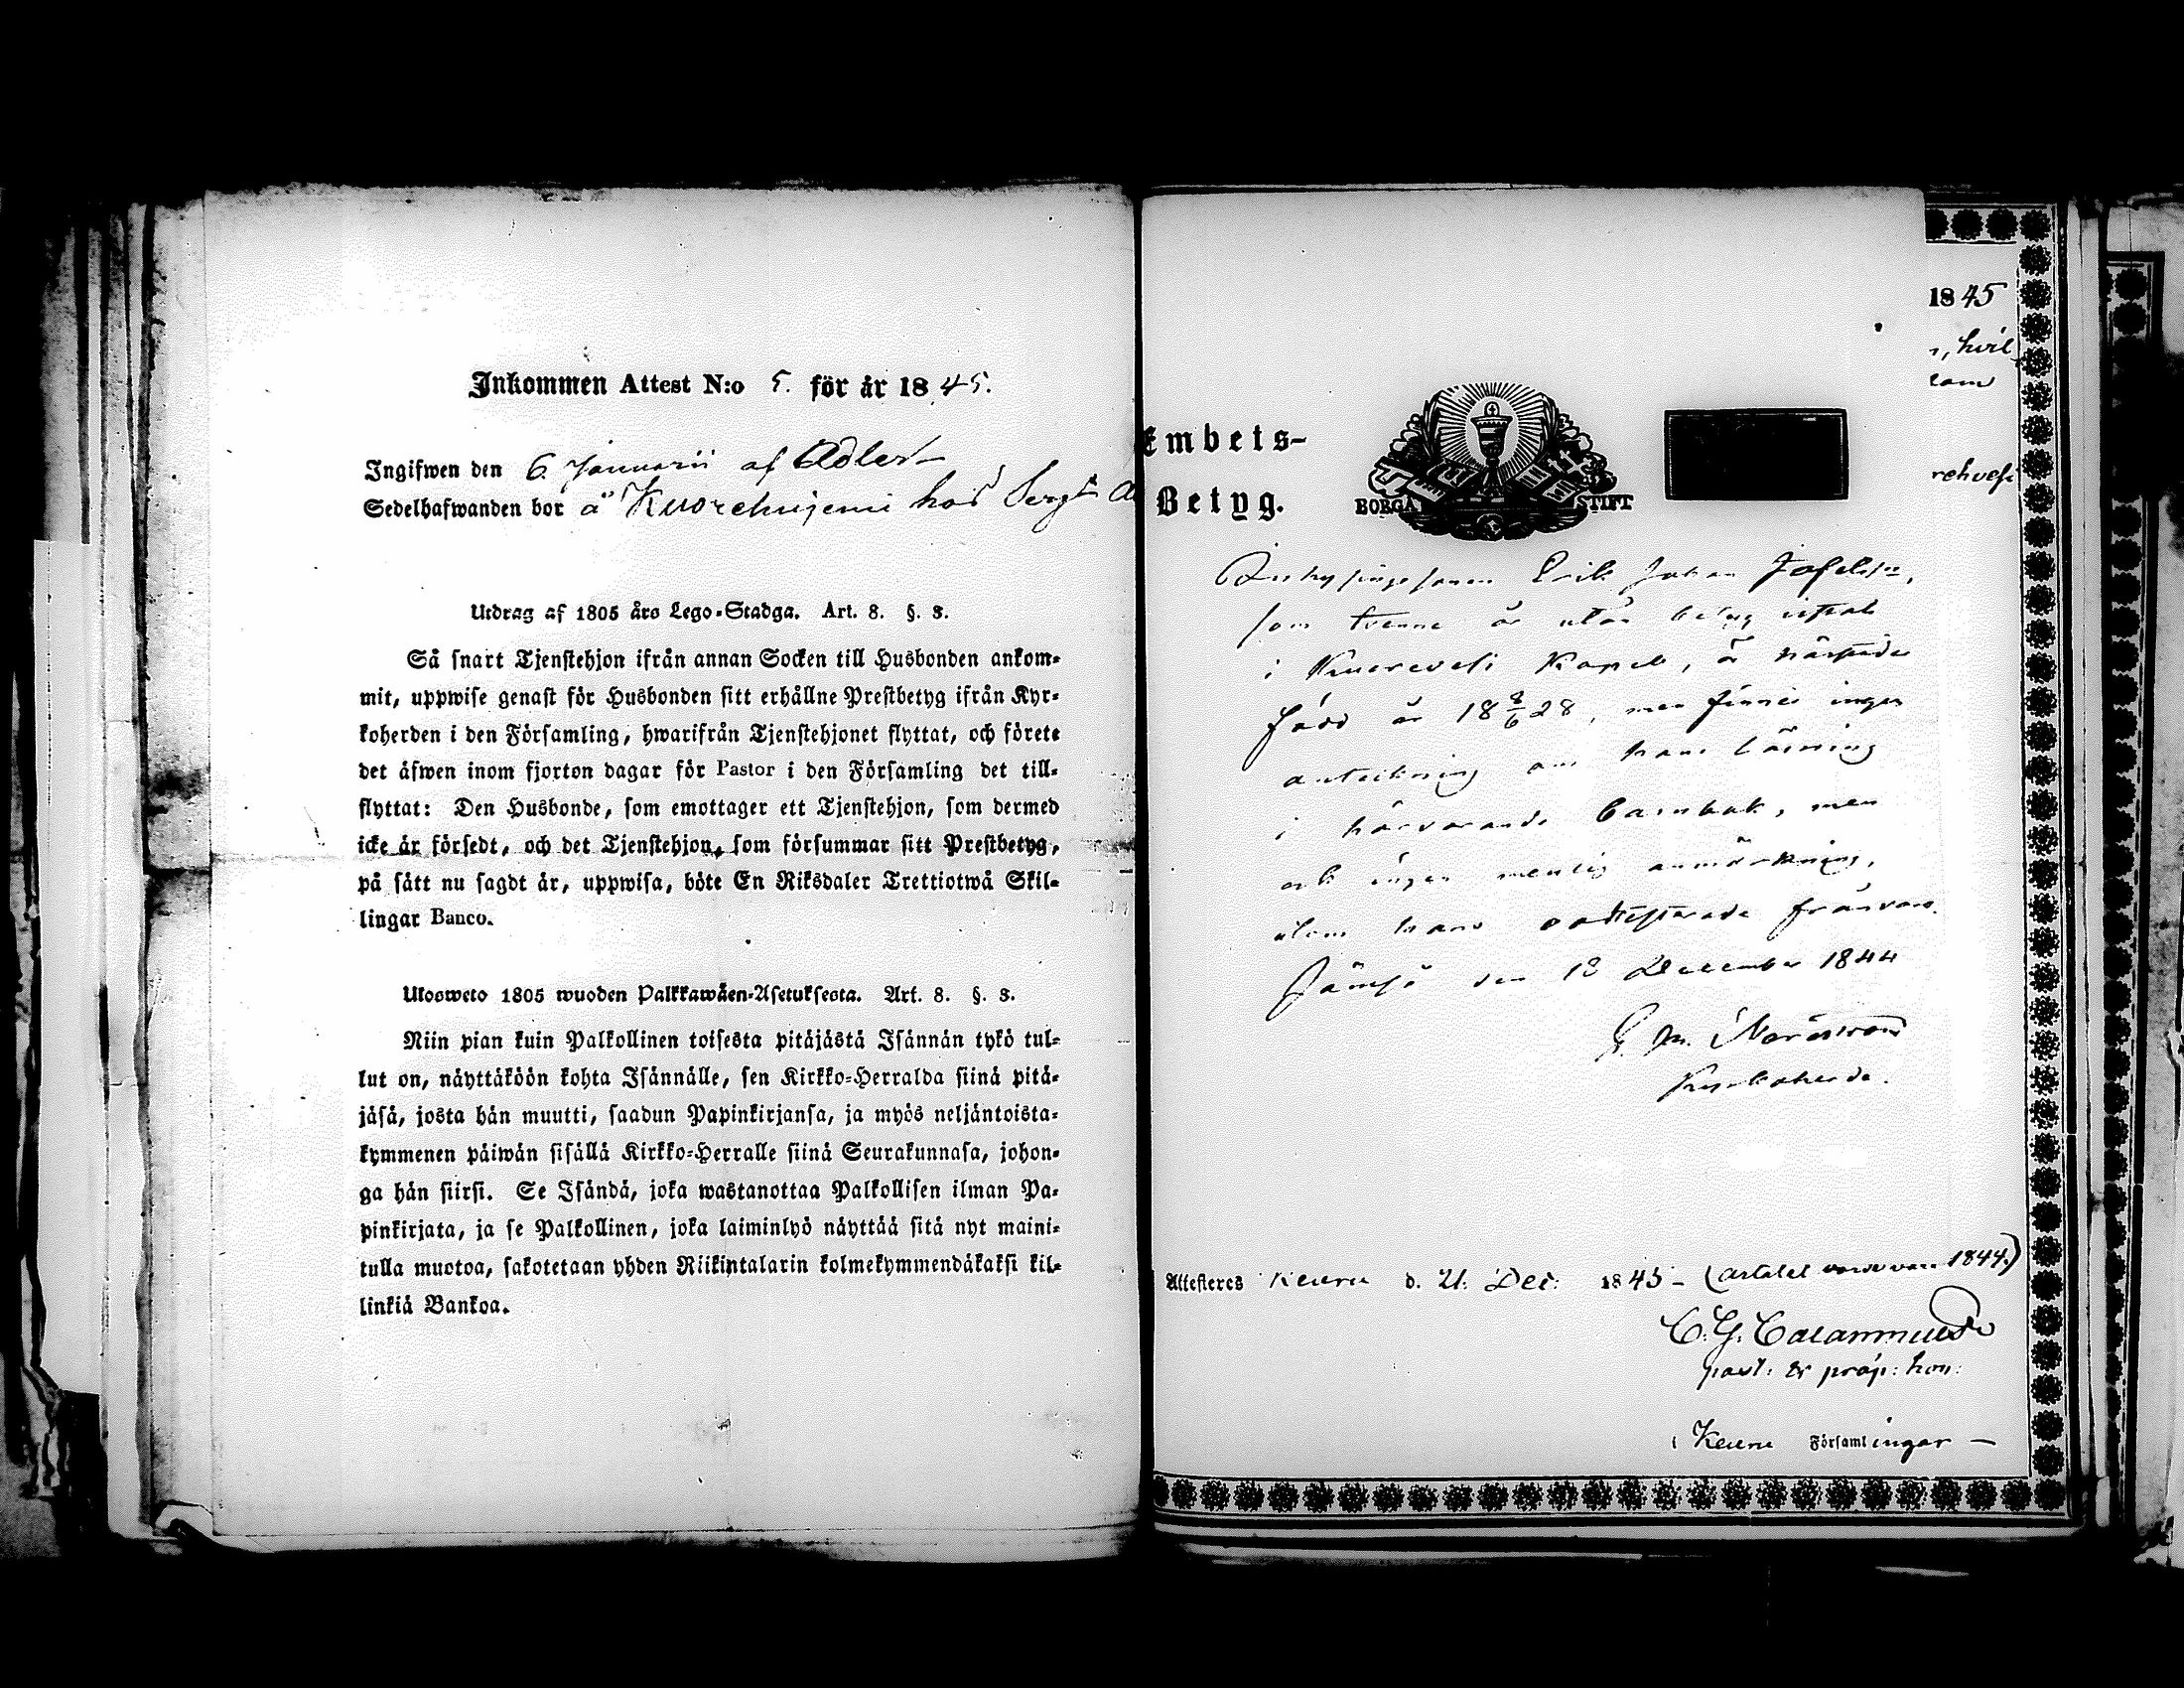 Inkommen Attest N:o 5. för år 1845.
Ingifwen den 6 Januarii af Adlert
Sedelhafwanden bor å hos Sergt
Utdrag af 1805 års Lego-Stadga. Art. 8. §. 3.
Så snart Tjenstehjon ifrån annan Socken till Husbonden ankom-
mit, uppwise genast för Husbonden sitt erhållne Prestbetyg ifrån Kyr-
koherden i den Församling, hwarifrån Tjenstehjonet flyttat, och förete
det äfwen inom fjorton dagar för Pastor i den Församling det till-
flyttat: Den Husbonde, som emottager ett Tjenstehjon, som dermed
icke är försedt, och det Tjenstehjon, som försummar sitt Prestbetyg,
på sätt nu sagdt är, uppwisa, böte En Riksdaler Trettiotwå Skil-
lingar Banco.
Ulosweto 1805 wuoden Palkkawäen-Asetuksesta. Art. 8. §. 3.
Niin pian kuin Palkollinen toisesta pitäjästä Isännän tykö tul-
lut on, näyttäköön kohta Isännälle, sen Kirkko-Herralda siinä pitä-
jäsä, josta hän muutti, saadun Papinkirjansa, ja myös neljäntoista-
kymmenen päiwän sisällä Kirkko-Herralle siinä Seurakunnasa, johon-
ga hän siirsi. Se Isändä, joka wastanottaa Palkollisen ilman Pa-
pinkirjata, ja se Palkollinen, joka laiminlyö näyttää sitä nyt maini-
tulla muotoa, sakotetaan yhden Riikintalarin kolmekymmendäkaksi kil-
linkiä Bankoa.
Embets-
Betyg.
BORGÅ STIFT
Erik Johan Josefsson,
som tvenne år utan betyg vistats
i Kuorevesi Kapell, är härstädes
född år 18 8/6 28, men finnes ingen
anteckning om hans läsning
i härvarande barnbok, men
och ingen menlig anmärkning,
utom hans oattesterade frånvaro.
Jämsä den 18 December 1844
G. M. Nordström
Kyrkoherde.
1845
, hvil
rehvesi
Attesteras Keuru d. 21. Dec: 1845 – (årtalet vara 1844.)
C. G. Calamnius
past: & præp: hon:
i Keuru Församlingar –